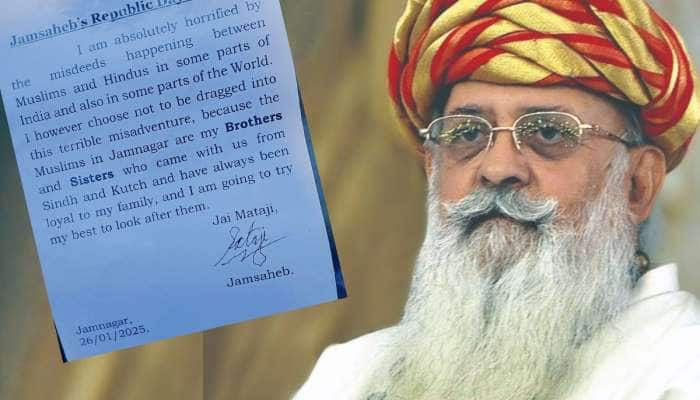 Jamsaheb's Republic Day
I am absolutely horrified by
the misdeeds happening between
Muslims and Hindus in some parts of
India and also in some parts of the World.
I however choose not to be dragged into
this terrible misadventure, because the
Muslims in Jamnagar are my Brothers
and Sisters who came with us from
Sindh and Kutch and have always been
loyal to my family, and I am going to try
my best to look after them.
Jai Mataji,
Jamsaheb.
Jamnagar,
26/01/2025.